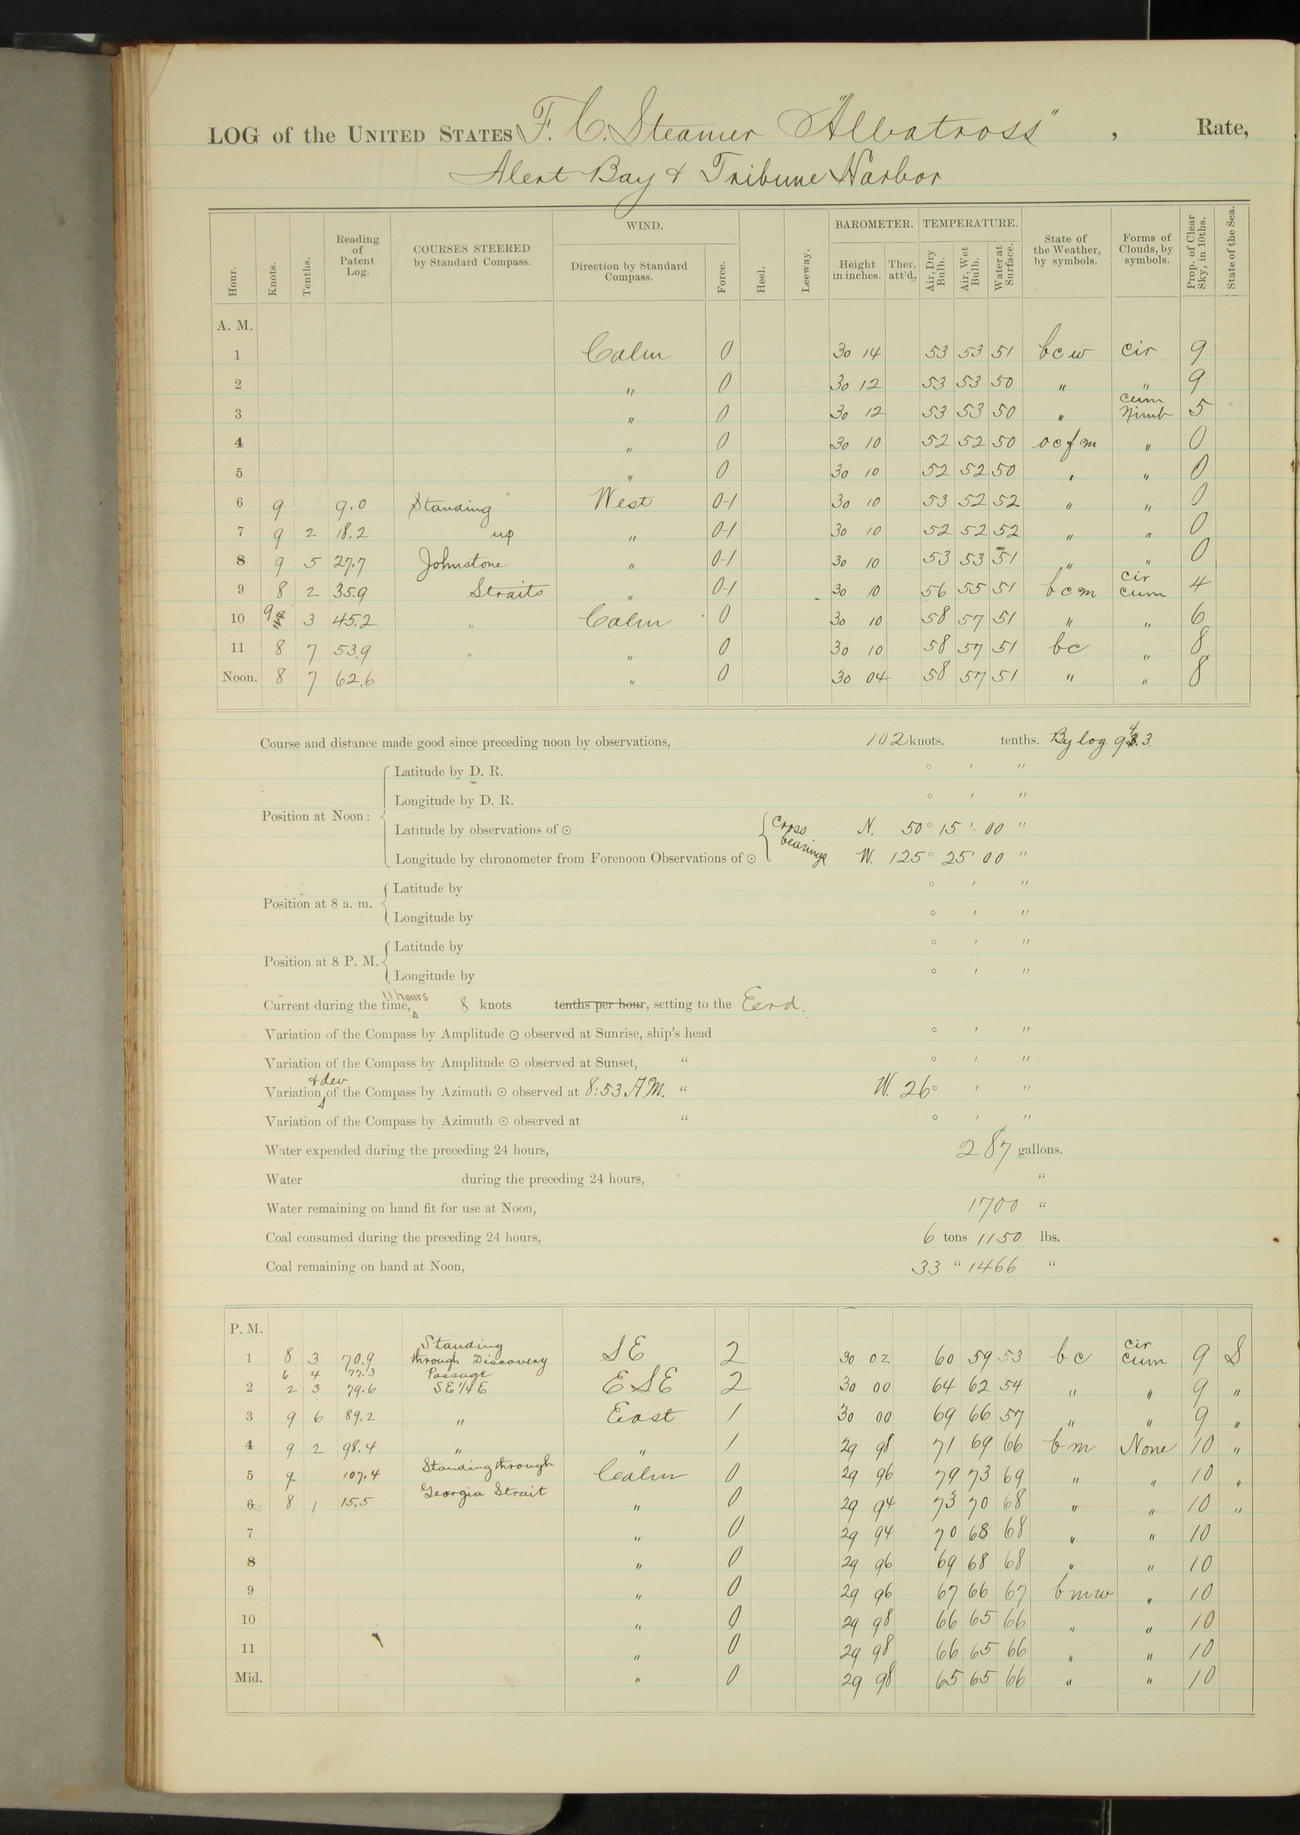 LOG of the UNITED STATES F. C. Steamer "Albatross", Rate,
Alert Bay & Tribune Harbor
Hour. Knots. Tenths. Reading of Patent Log. COURSES STEERED by Standard Compass. WIND. Direction by Standard Compass. Force. Heel. Leeway. BAROMETER. Height in inches. Ther. att'd. TEMPERATURE. Air, Dry Bulb. Air, Wet Bulb. Water at Surface. State of the Weather, by symbols. Forms of Clouds, by symbols. Prop. of Clear Sky, in 10ths. State of the Sea.
A. M.
1 Calm 0 30 14 53 53 51 bcw cir 9
2 " 0 30 12 53 53 50 " " 9
3 " 0 30 12 53 53 50 " cum Nimb 5
4 " 0 30 10 52 52 50 ocfm " 0
5 " 0 30 10 52 52 50 " " 0
6 9 9.0 Standing West 0-1 30 10 53 52 52 " " 0
7 9 2 18.2 up " 0-1 30 10 52 52 52 " " 0
8 9 5 27.7 Johnstone " 0-1 30 10 53 53 51 " " 0
9 8 2 35.9 Straits " 0-1 30 10 56 55 51 bcm cir cum 4
10 9 3 45.2 " Calm 0 30 10 58 57 51 " " 6
11 8 7 53.9 " " 0 30 10 58 57 51 bc " 8
Noon. 8 7 62.6 " 0 30 04 58 57 51 " " 8
Course and distance made good since preceding noon by observations, 102 knots. tenths. By log 94.3
Position at Noon: Latitude by D. R. ° ′ ″
Longitude by D. R. ° ′ ″
Latitude by observations of ⊙ Cross bearings N. 50° 15′ 00″
Longitude by chronometer from Forenoon Observations of ⊙ W. 125° 25′ 00″
Position at 8 a. m. Latitude by ° ′ ″
Longitude by ° ′ ″
Position at 8 P. M. Latitude by ° ′ ″
Longitude by ° ′ ″
Current during the time, 11 hours 8 knots tenths per hour, setting to the Eend.
Variation of the Compass by Amplitude ⊙ observed at Sunrise, ship's head ° ′ ″
Variation of the Compass by Amplitude ⊙ observed at Sunset, " ° ′ ″
Variation & dev of the Compass by Azimuth ⊙ observed at 8:53 A.M. " W. 26° ′ ″
Variation of the Compass by Azimuth ⊙ observed at " ° ′ ″
Water expended during the preceding 24 hours, 287 gallons.
Water during the preceding 24 hours, "
Water remaining on hand fit for use at Noon, 1700 "
Coal consumed during the preceding 24 hours, 6 tons 1150 lbs.
Coal remaining on hand at Noon, 33 " 1466 "
P. M.
1 8 3 70.9 Standing through Discovery SE 2 30 02 60 59 53 bc cir cum 9 S
6 4 77.3 Passage
2 2 3 79.6 SE 1/4 E ESE 2 30 00 64 62 54 " " 9 "
3 9 6 89.2 " East 1 30 00 69 66 57 " " 9 "
4 9 2 98.4 " " 1 29 98 71 69 66 bm None 10 "
5 9 107.4 Standing through Calm 0 29 96 79 73 69 " " 10 "
6 8 1 15.5 Georgia Strait " 0 29 94 73 70 68 " " 10 "
7 " 0 29 94 70 68 68 " " 10
8 " 0 29 96 69 68 68 " " 10
9 " 0 29 96 67 66 67 bmw " 10
10 " 0 29 98 66 65 66 " " 10
11 " 0 29 98 66 65 66 " " 10
Mid. " 0 29 98 65 65 66 " " 10